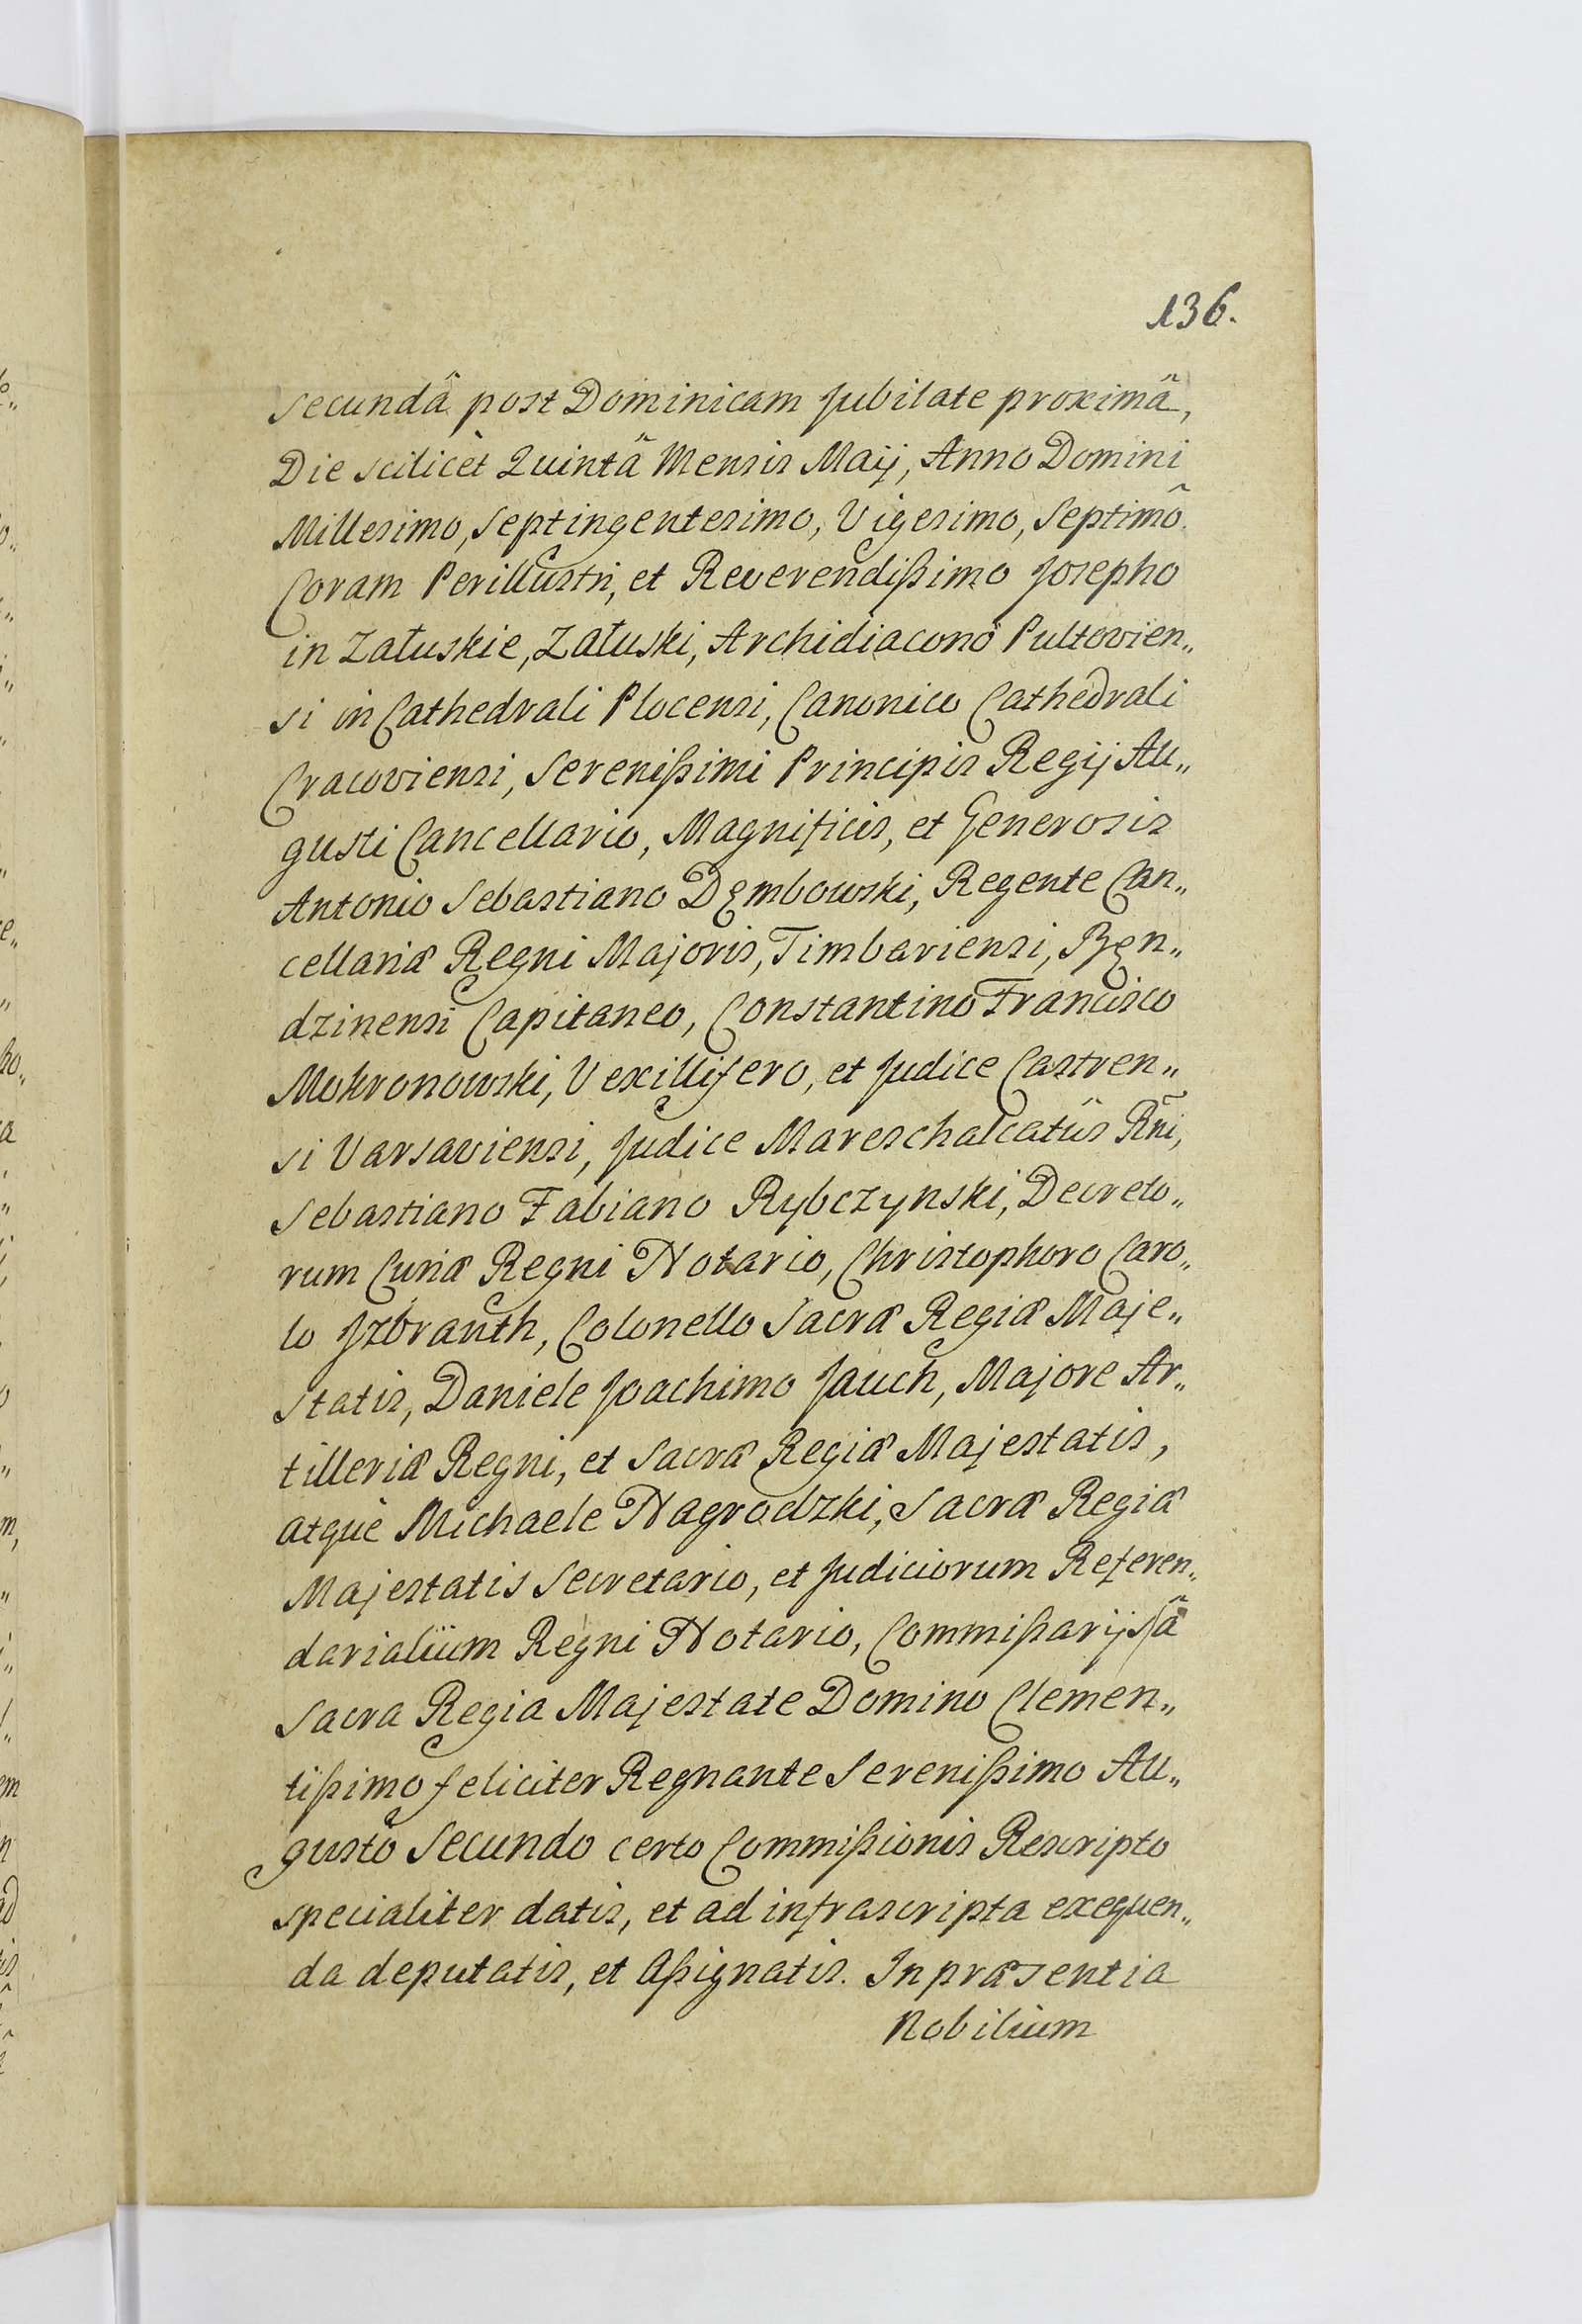 136.
secundâ post Dominicam Jubilate proximâ,
Die scilicèt Quintâ Mensis Maij, Anno Domini
Millesimo, Septingentesimo, Vigesimo, Septimô.
Coram Perillustri, et Reverendißimo Josepho
in Załuskie, Załuski, Archidiaconô Pultovien„
si in Cathedrali Plocensi, Canonico Cathedrali
Cracoviensi, Serenißimi Principis Regij Au„
gusti Cancellario, Magnificis, et Generosis
Antonio Sebastiano Dęmbowski, Regente Can„
cellariæ Regni Majoris, Timbariensi, Bęn„
dzinensi Capitaneo, Constantino Francisco
Mokronowski, Vexillifero, et Judice Castren„
si Varsaviensi, Judice Mareschalcatûs Rñi,
Sebastiano Fabiano Rybczynski, Decreto„
rum Curiæ Regni Notario, Christophoro Caro„
lo Jzbranth, Colonello Sacræ Regiæ Maje„
statis, Daniele Joachimo Jauch, Majore Ar„
tilleriæ Regni, et Sacræ Regiæ Majestatis,
atquè Michaele Nagrodzki, Sacræ Regiæ
Majestatis Secretario, et Judiciorum Referen„
darialium Regni Notario, Commißarijs â
Sacra Regia Majestate Domino Clemen„
tißimo feliciter Regnante Serenißimo Au„
gustô Secundo certo Commißionis Rescripto
specialiter datis, et ad infrascripta exequen„
da deputatis, et Aßignatis. In præsentia
Nobilium